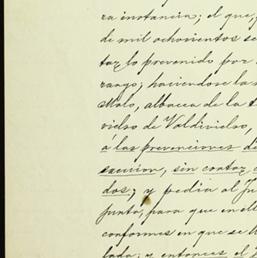 ra instancia; el que,
de mil ochocientos se
taz lo prevenido por
zango, haciendose la s
Malo, albacea de la t
vidso de Valdivielso,
á las prevenciones de
sección, sin contar
dos; y pedia al Ju
junta, para que en ell
conformes en que se
lada; y entonces el